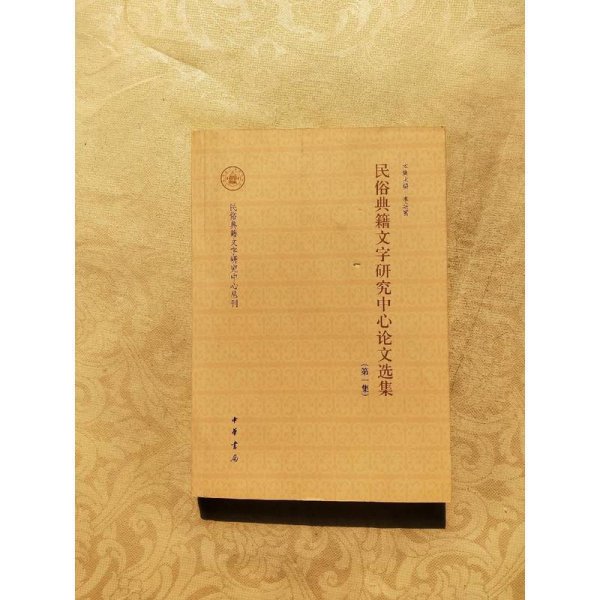 民俗典籍文字研究中心论文选集
(第一集)
民俗典籍文字研究中心丛刊
中华书局